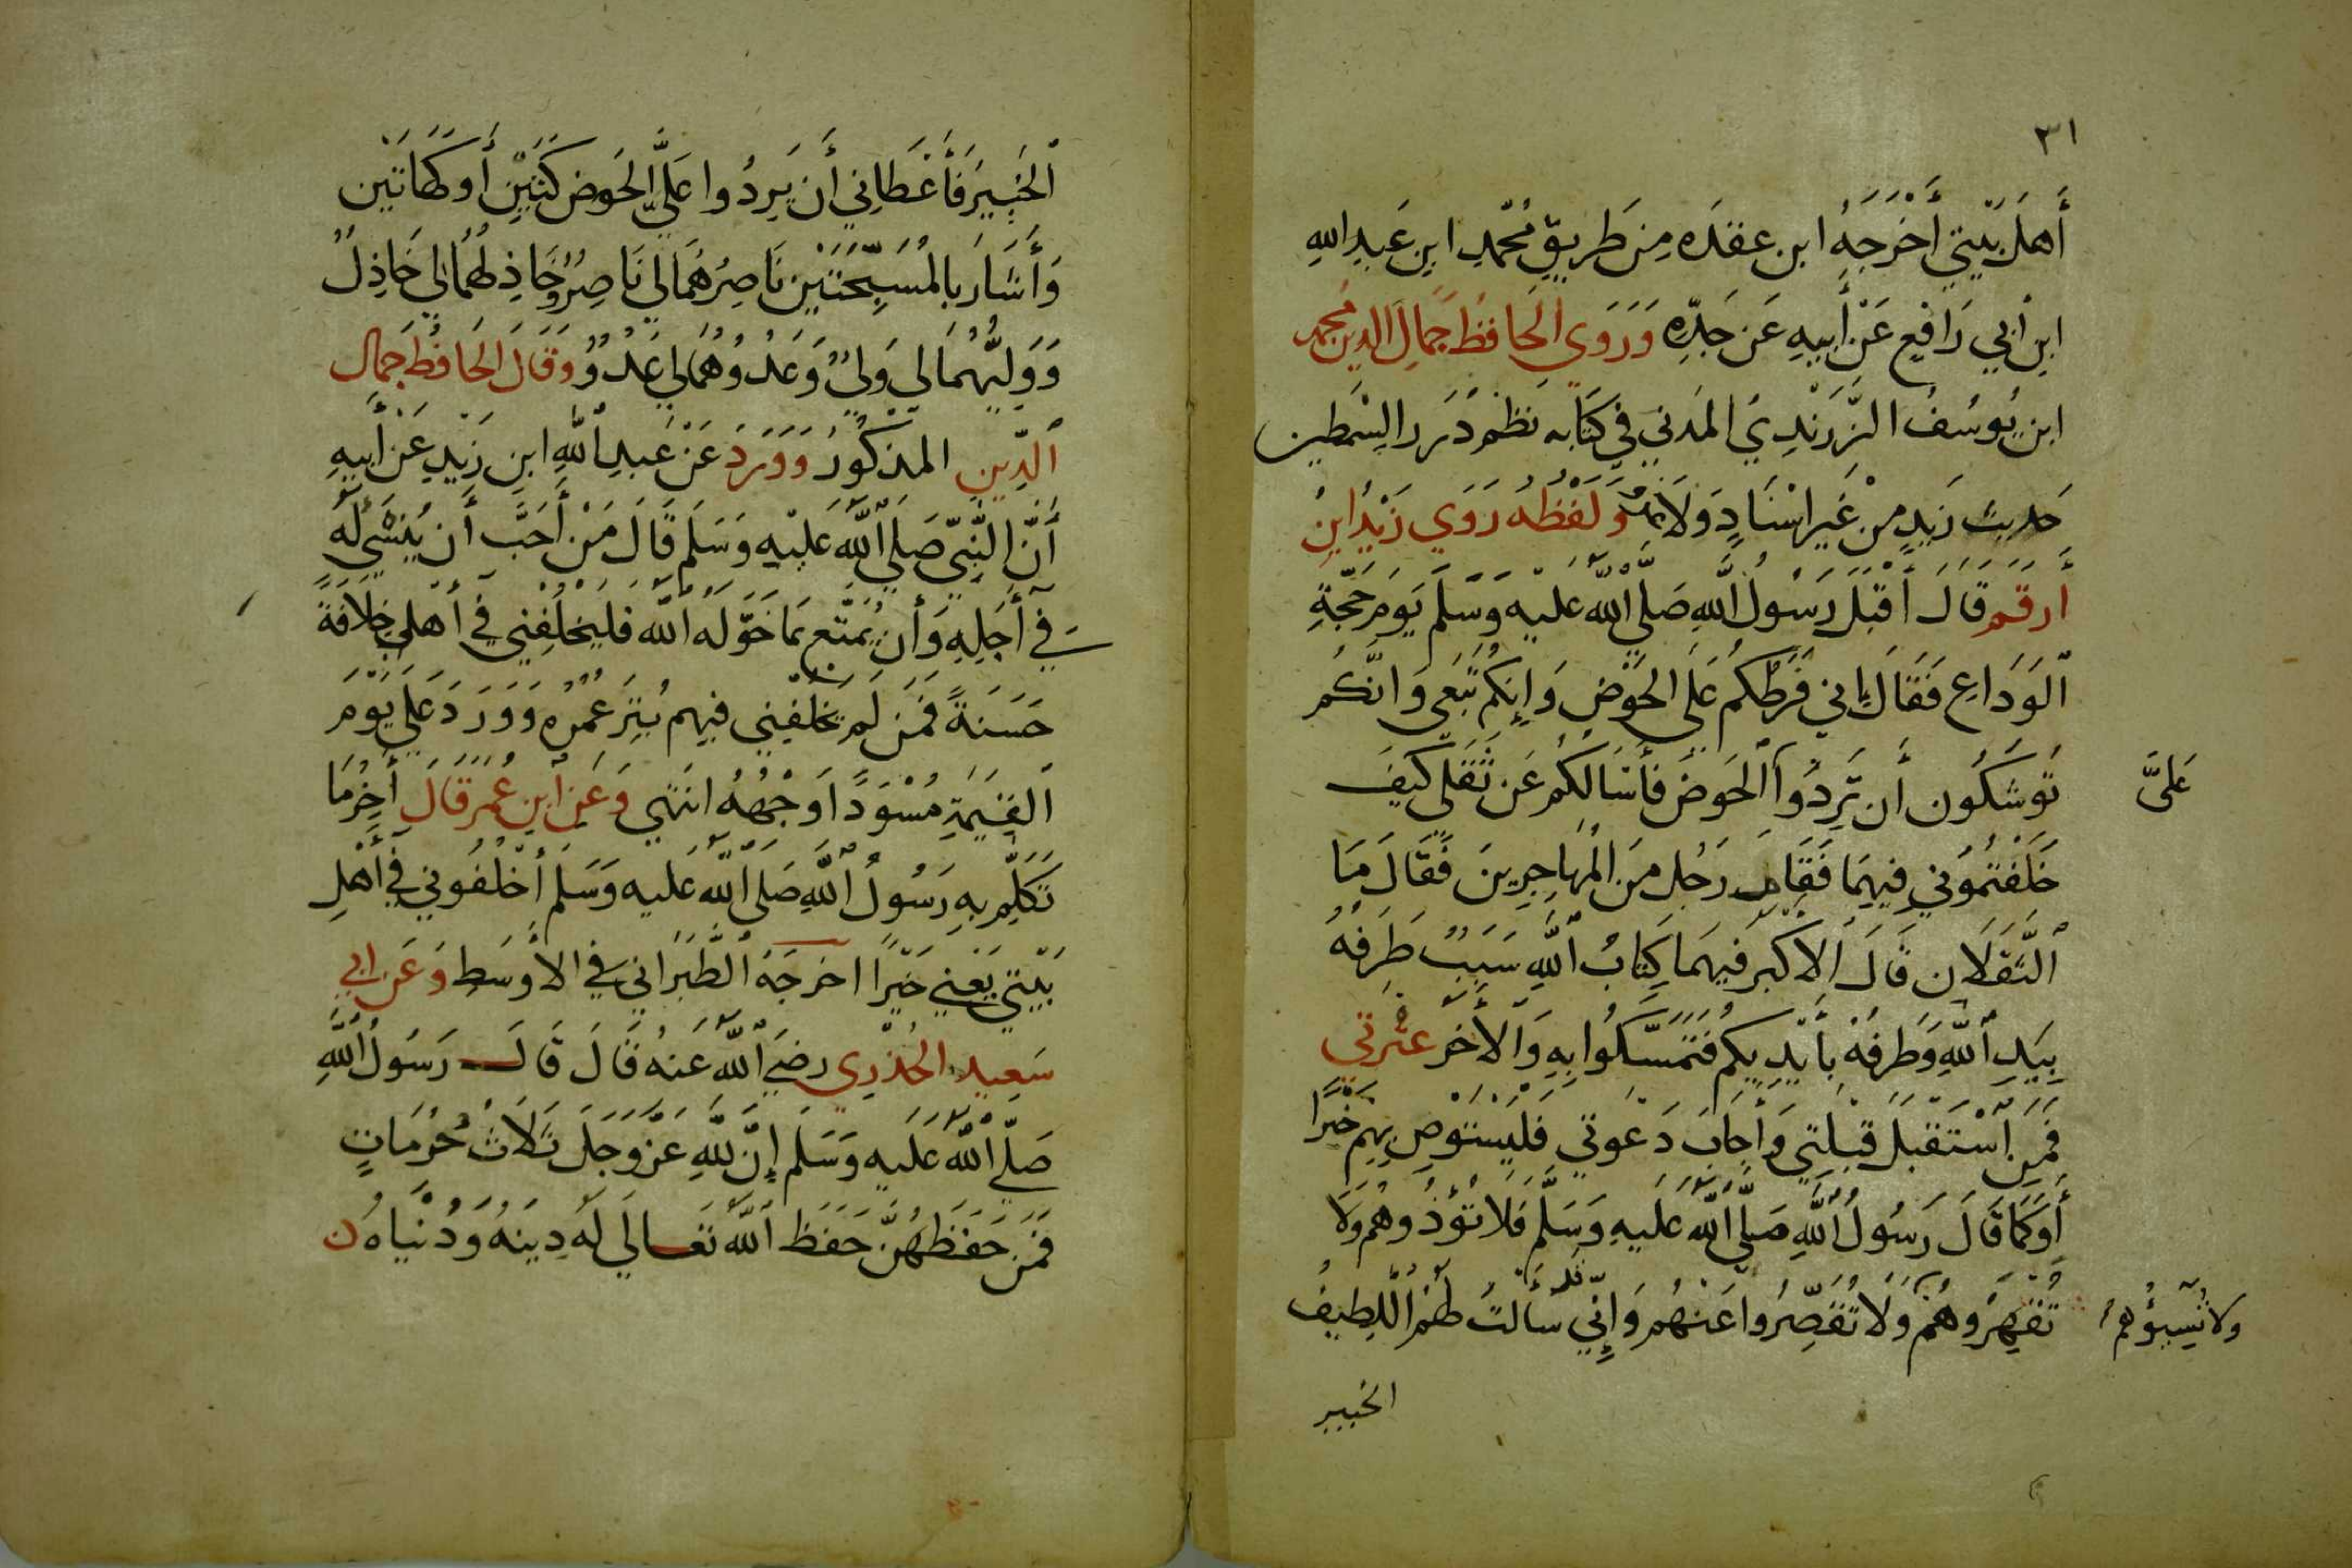 ٣١
أَهلَ بَيتي أَخْرَجَهُ ابن عقدَه مِن طَريقِ مُحّمدِ ابنِ عَبدِ اللهِ
ابنِ أبي رَافِع عَنْ أَبيهِ عَن جَدِّهِ وَرَوَي الحَافظ جَمالَ الدين محمد
ابن يُوسُفُ الزَّرَنْدِي المَدَني في كتَابه نَظمْ دُرَر السِّمطين
حَديث زَيدٍ منْ غَير اسْنَادٍ وَلَا وَلَفْظُهُ رَوَي زَيْدُ ابنُ
أرقم قَالَ أقبَلَ رَسُولُ اللهِ صَلَّى اللهُ عَليه وَسَلَّم يَومَ حَجَّةِ
الوَدَاعِ فَقَالَ إني فَرَطُكُم عَلَى الحَوْضِ وَإنكُم تَبَعي وَانّكُم
تُوشكُون أَن تَرِدُوا الحَوضَ فَأسَالكُم عَن ثَقَلَي كَيفَ
عَلَيَّ
خَلَفْتُمُوني فِيهِمَا فَقَامَ رَجُل منَ المُهَاجِرِينَ فَقَالَ مَا
الثَّقَلَان قَالَ الاكبَر فيهمَا كِتَابُ اللهِ سَبَبٌ طَرَفهُ
بِيَدِ اللهِ وَطَرفهُ بأَيْدِيكُم فَتَمَسَّكُوا بِهِ وَالأَخَر عتْرَتي
فَمَن اسْتَقبَلَ قبْلَتِي وَأَجَابَ دَعْوتي فَليَستَوصِ بِهِم خَيْرًا
أَوكَمَا قَالَ رَسُولُ اللهِ صَلَّى اللهُ عَلَيهِ وَسَلَّم فَلَا تُؤذُوهُم وَلَا
تُقهِرُوهُمْ وَلَا تُقَصِّرُوا عَنهُم وَإِنّي قد سَألتُ لَهُمُ اللَّطِيفُ
ولا تُسِبُّوهُم
الخبير
الخَبِيرَ فَأَعْطَاني أَن يَرِدُوا عَلَيَّ الحَوض كَتَيْن أَو كَهَاتَيْن
وَأَشَارَ بالمُسَبِّحَتَيْن نَاصِرُهُمَا لي نَاصِرٌ وخَاذِلهُمَا لي خَاذِلٌ
وَوَليُّهُمَا لي وَليٌّ وَعَدُوهُمَا لي عَدُوٌّ وَقَالَ الحَافظ جَمَال
الدِّين المذكُورُ وَوَرَدَ عَنْ عَبدِ اللهِ ابنِ زَيْدٍ عَنْ أبيهِ
أَنَّ النَّبِيّ صَلَّي اللهُ عَلَيْهِ وَسَلَم قَالَ مَنْ أَحَبَّ أَن يُنسَي لَهُ
في أَجَلِهِ وَأَن يُمَتَّع بمَا خَوَّلَهُ اللهُ فَليَخلُفني في أَهلي خِلَافَةً
حَسَنَةً فَمَن لَم يَخلُفني فيهِم بُتِرَ عُمُرُه وَوَرَدَ عَلَي يَوْمَ
القِيَمَةِ مُسْوَدًّا وَجْهُهُ انتَهي وَعَن ابنِ عُمَر قَالَ أَخِرُ مَا
تَكَلّم بِهِ رَسُولُ اللهِ صَلَى اللهُ عَلَيه وَسَلم أخْلُفُوني في أَهْلِ
بَيْتي يَعْني خَيْرًا اخرَجَهُ الطَّبَرَاني في الأوسَطِ وَعَن ابي
سَعيد الخُدْرِي رَضيَ اللهُ عَنهُ قَالَ قَالَ رَسُولُ اللهِ
صَلَّي اللهُ عَلَيهِ وَسَلَم إنَّ للهِ عَزَّ وَجَلَ ثَلَاثُ حُرُمَاتٍ
فَمَن حَفَظَهُنَّ حَفَظ اللهُ تَعَالَي لَهُ دِينَهُ وَدُنْيَاهُ ن